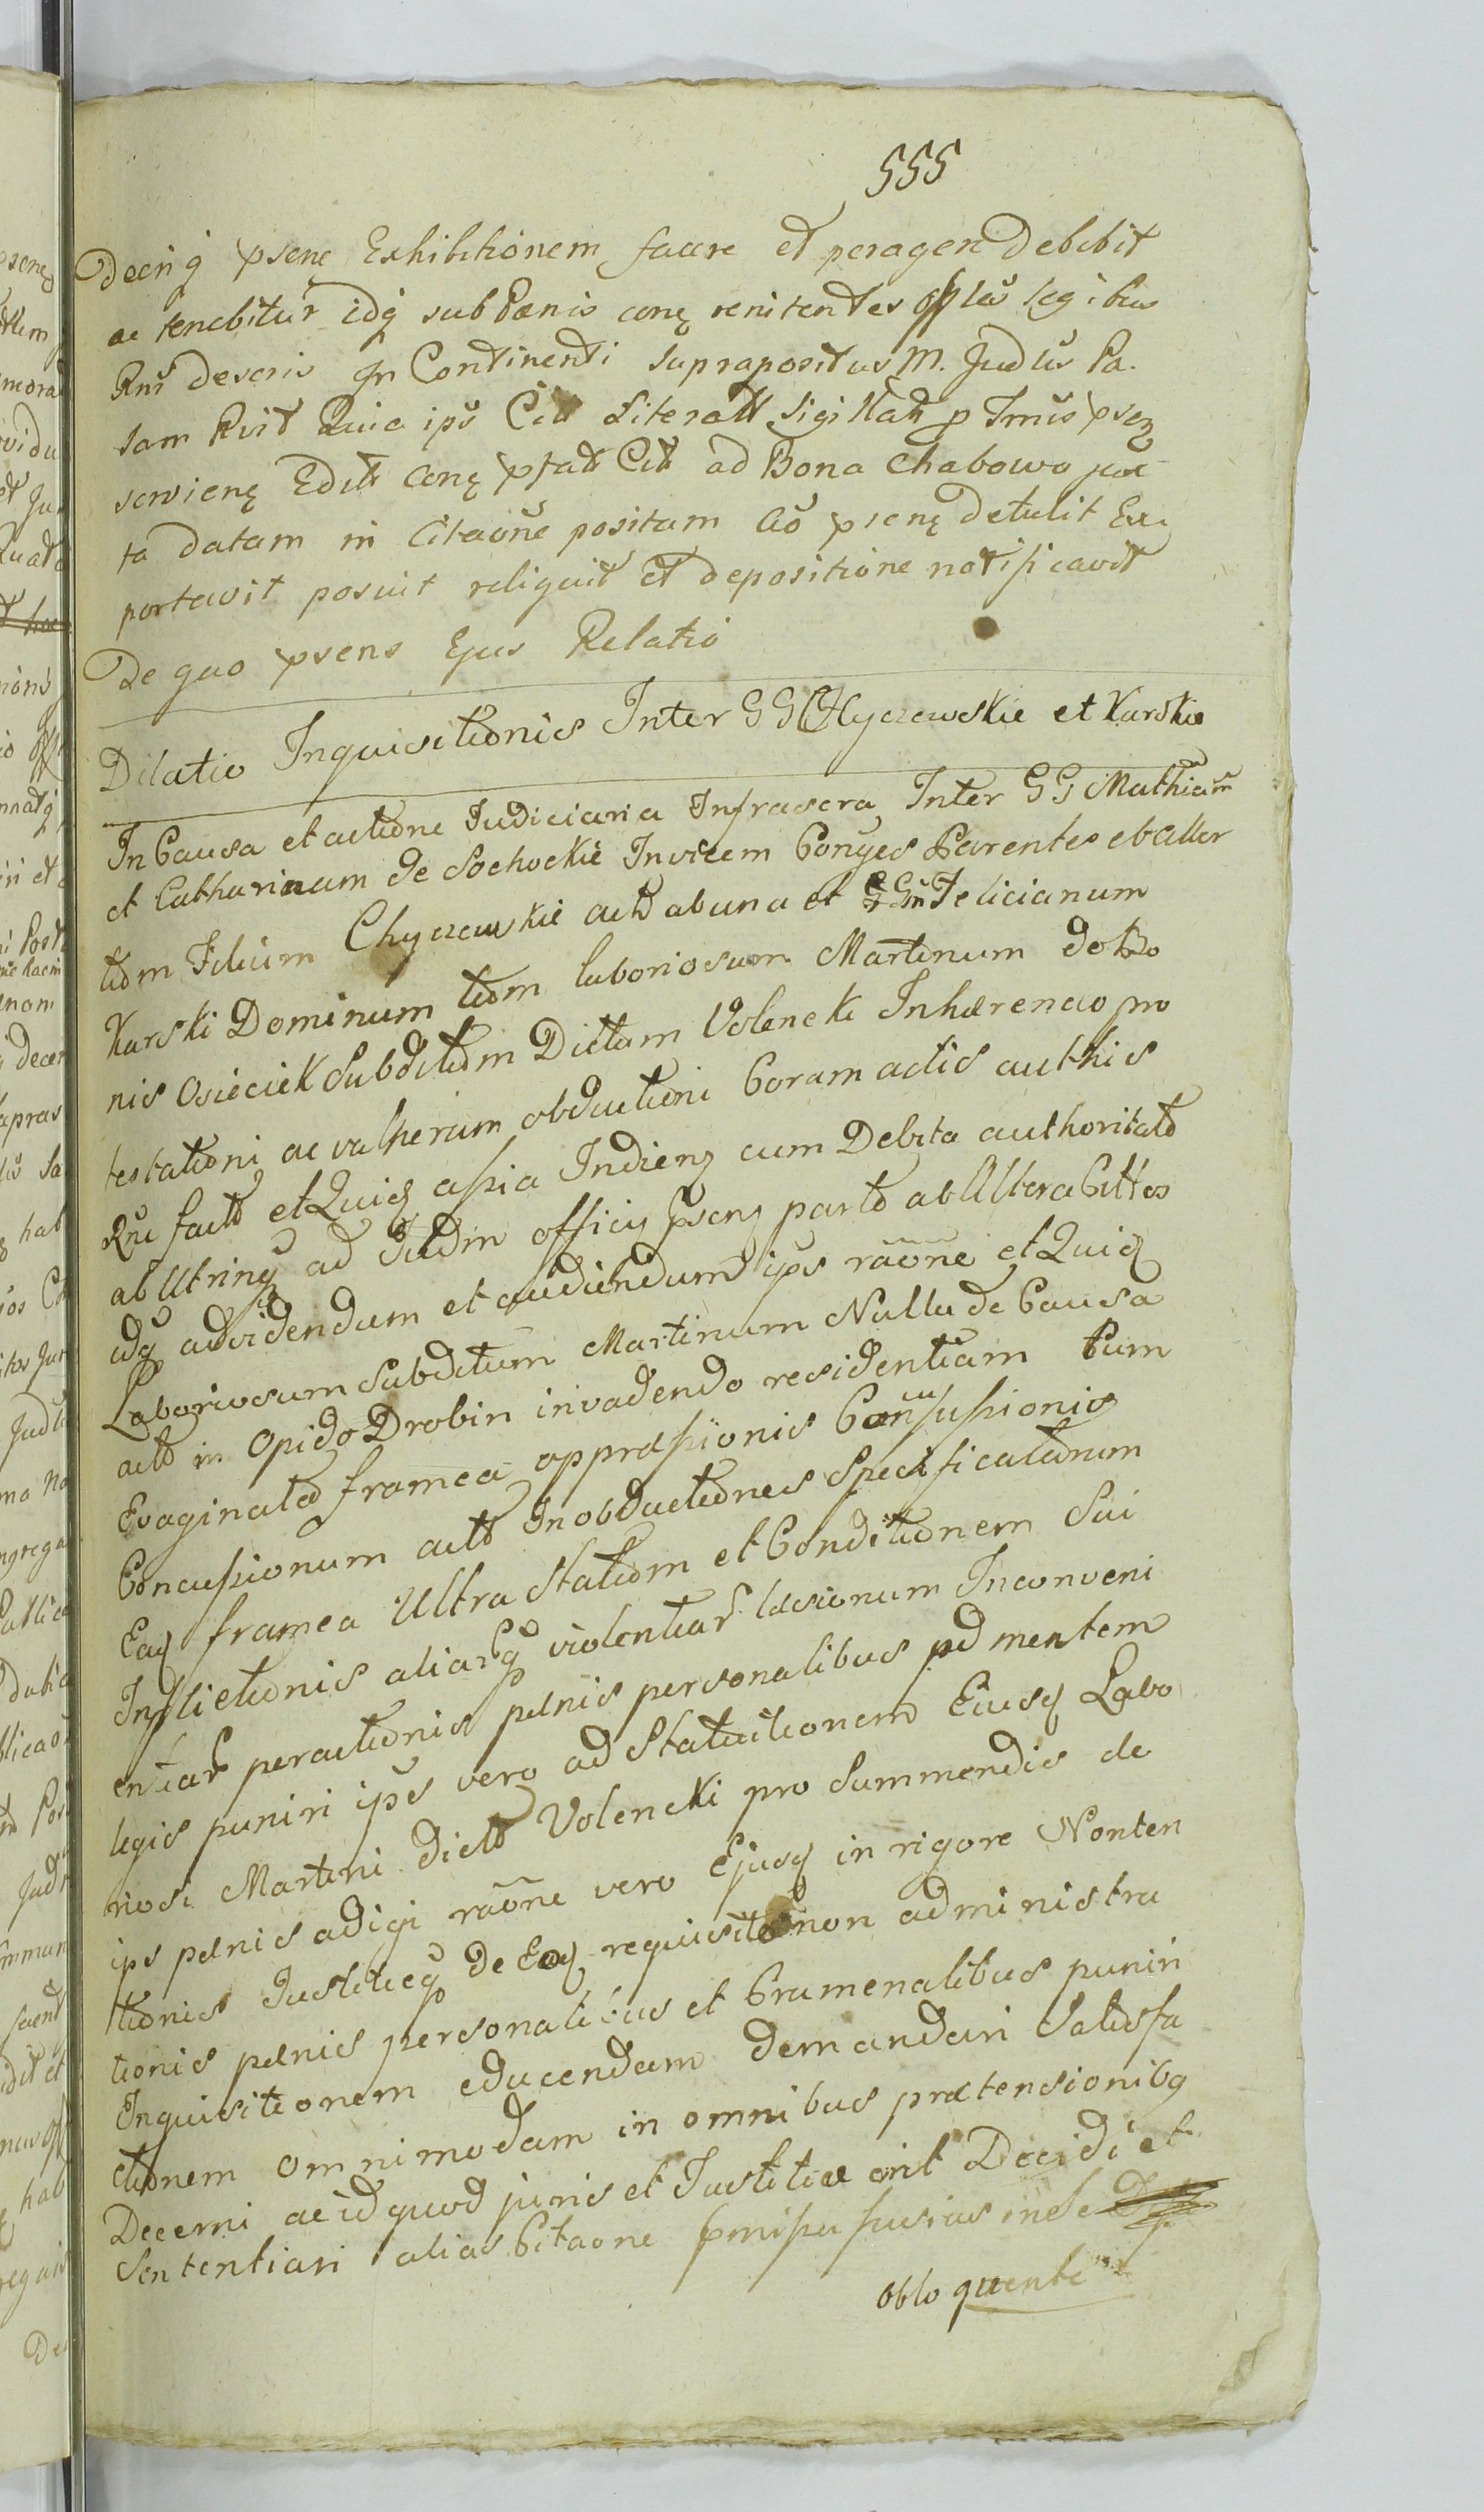 555
psene Exhibitionem facere et peragere debebit
ac tenebitur idq sub Pænis conq renitentes legibus
Rni descris In Continenti suprapositus M. Judlis Pa.
sam Quia ips Literall Sigillatt p psen
servienq Edit conq Citt ad Bona Chabowo jux
ta datam in Citaone positam psenq detulit Ex
portavit posuit reliquit et depositione notificavit
De quo psens Ejus Relatio
Dilatio Inquisitionis Inter GG Chyczewskie et Karskie
In Causa et actione Judiciaria Infrascra Inter GG Mathiam
et Catharinam de Sochockie Invicem Conjges Parentes et
tum Filium Chyczewskie actt ab una et Felicianum
Karski Dominum tum laboriosum Martinum de Bo
nis Osieciek Subditum Dictum Volencki Inhærendo pro
testationi ac vulnerum obductioni Coram actis authis
Rni factt et Quiq Indienq cum Debita authoritatt
ab Utrinq ad Judm officij psenq partt ab Altera Cittos
idq ad videndum et audiendum ips raone et Quiq
Laboriosum Subditum Martinum Nulla de Causa
actt in Opido Drobin invadendo residentiam Cum
Evaginata framea oppressionis
Concussionum actt In obductiones Specificatarum
Eaq framea Ultra Statum et Conditionem Sui
Inflictionis aliarq violentiar læsionum Inconveni
entiar peractionis pænis personalibus ad mentem
legis puniri ips vero ad Statuitionem Eiusq Labo
riosi Martini dictt Volencki pro Summendis de
ips pænis adigi raone vero Ejusq in rigore Nonten
tionis Justitieq de Eoq requisito non administra
tionis pænis personalibus et Craminalibus puniri
Inquisitionem educendam demandari Satisfa
ctionem omnimodam in omnibus prætensionibq
Decerni ac id quod juris et Justitiæ erit Decidi et
Sententiari alias Citaone fusius inde
obloquente